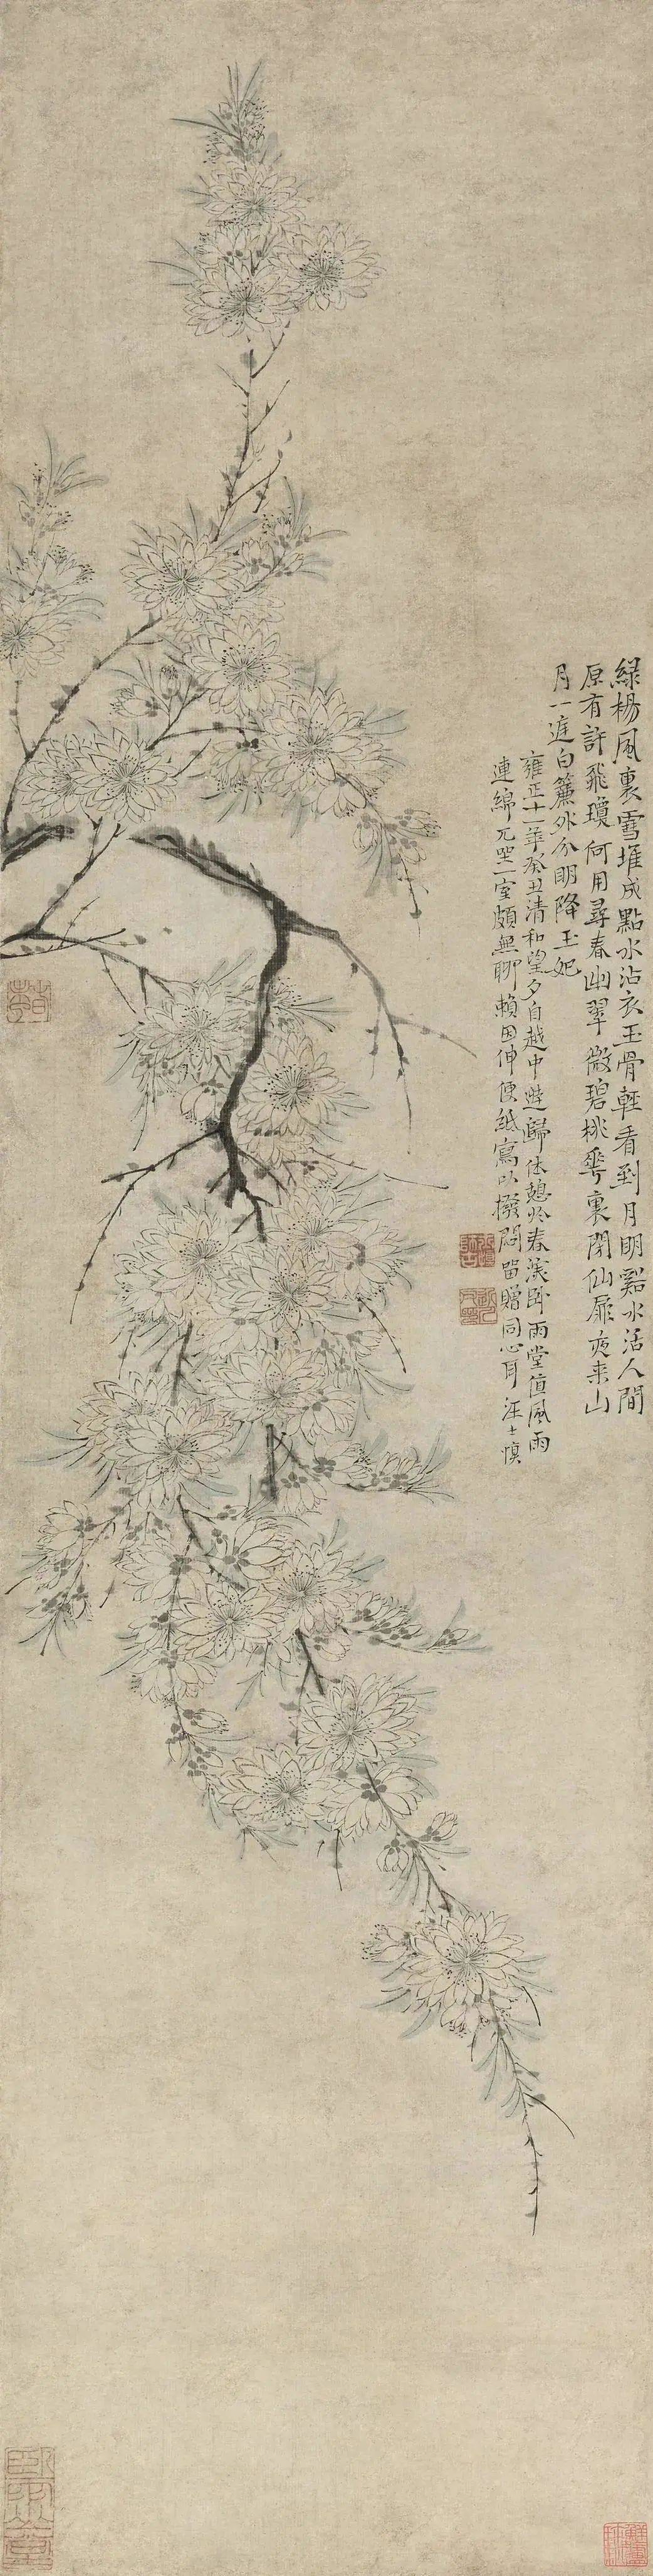 綠楊風裏雪堆成點水沾衣玉骨輕看到月明谿水活人間
原有許飛瓊何用尋春幽翠微碧桃華裏閉仙扉夜來山
月一遮白簾外分明降玉妃
雍正十一年癸丑清和望夕自越中遊歸休憩於春溪卧雨堂值風雨
連綿兀坐一室頗無聊賴因伸便紙寫以撥悶留贈同心耳 汪士慎